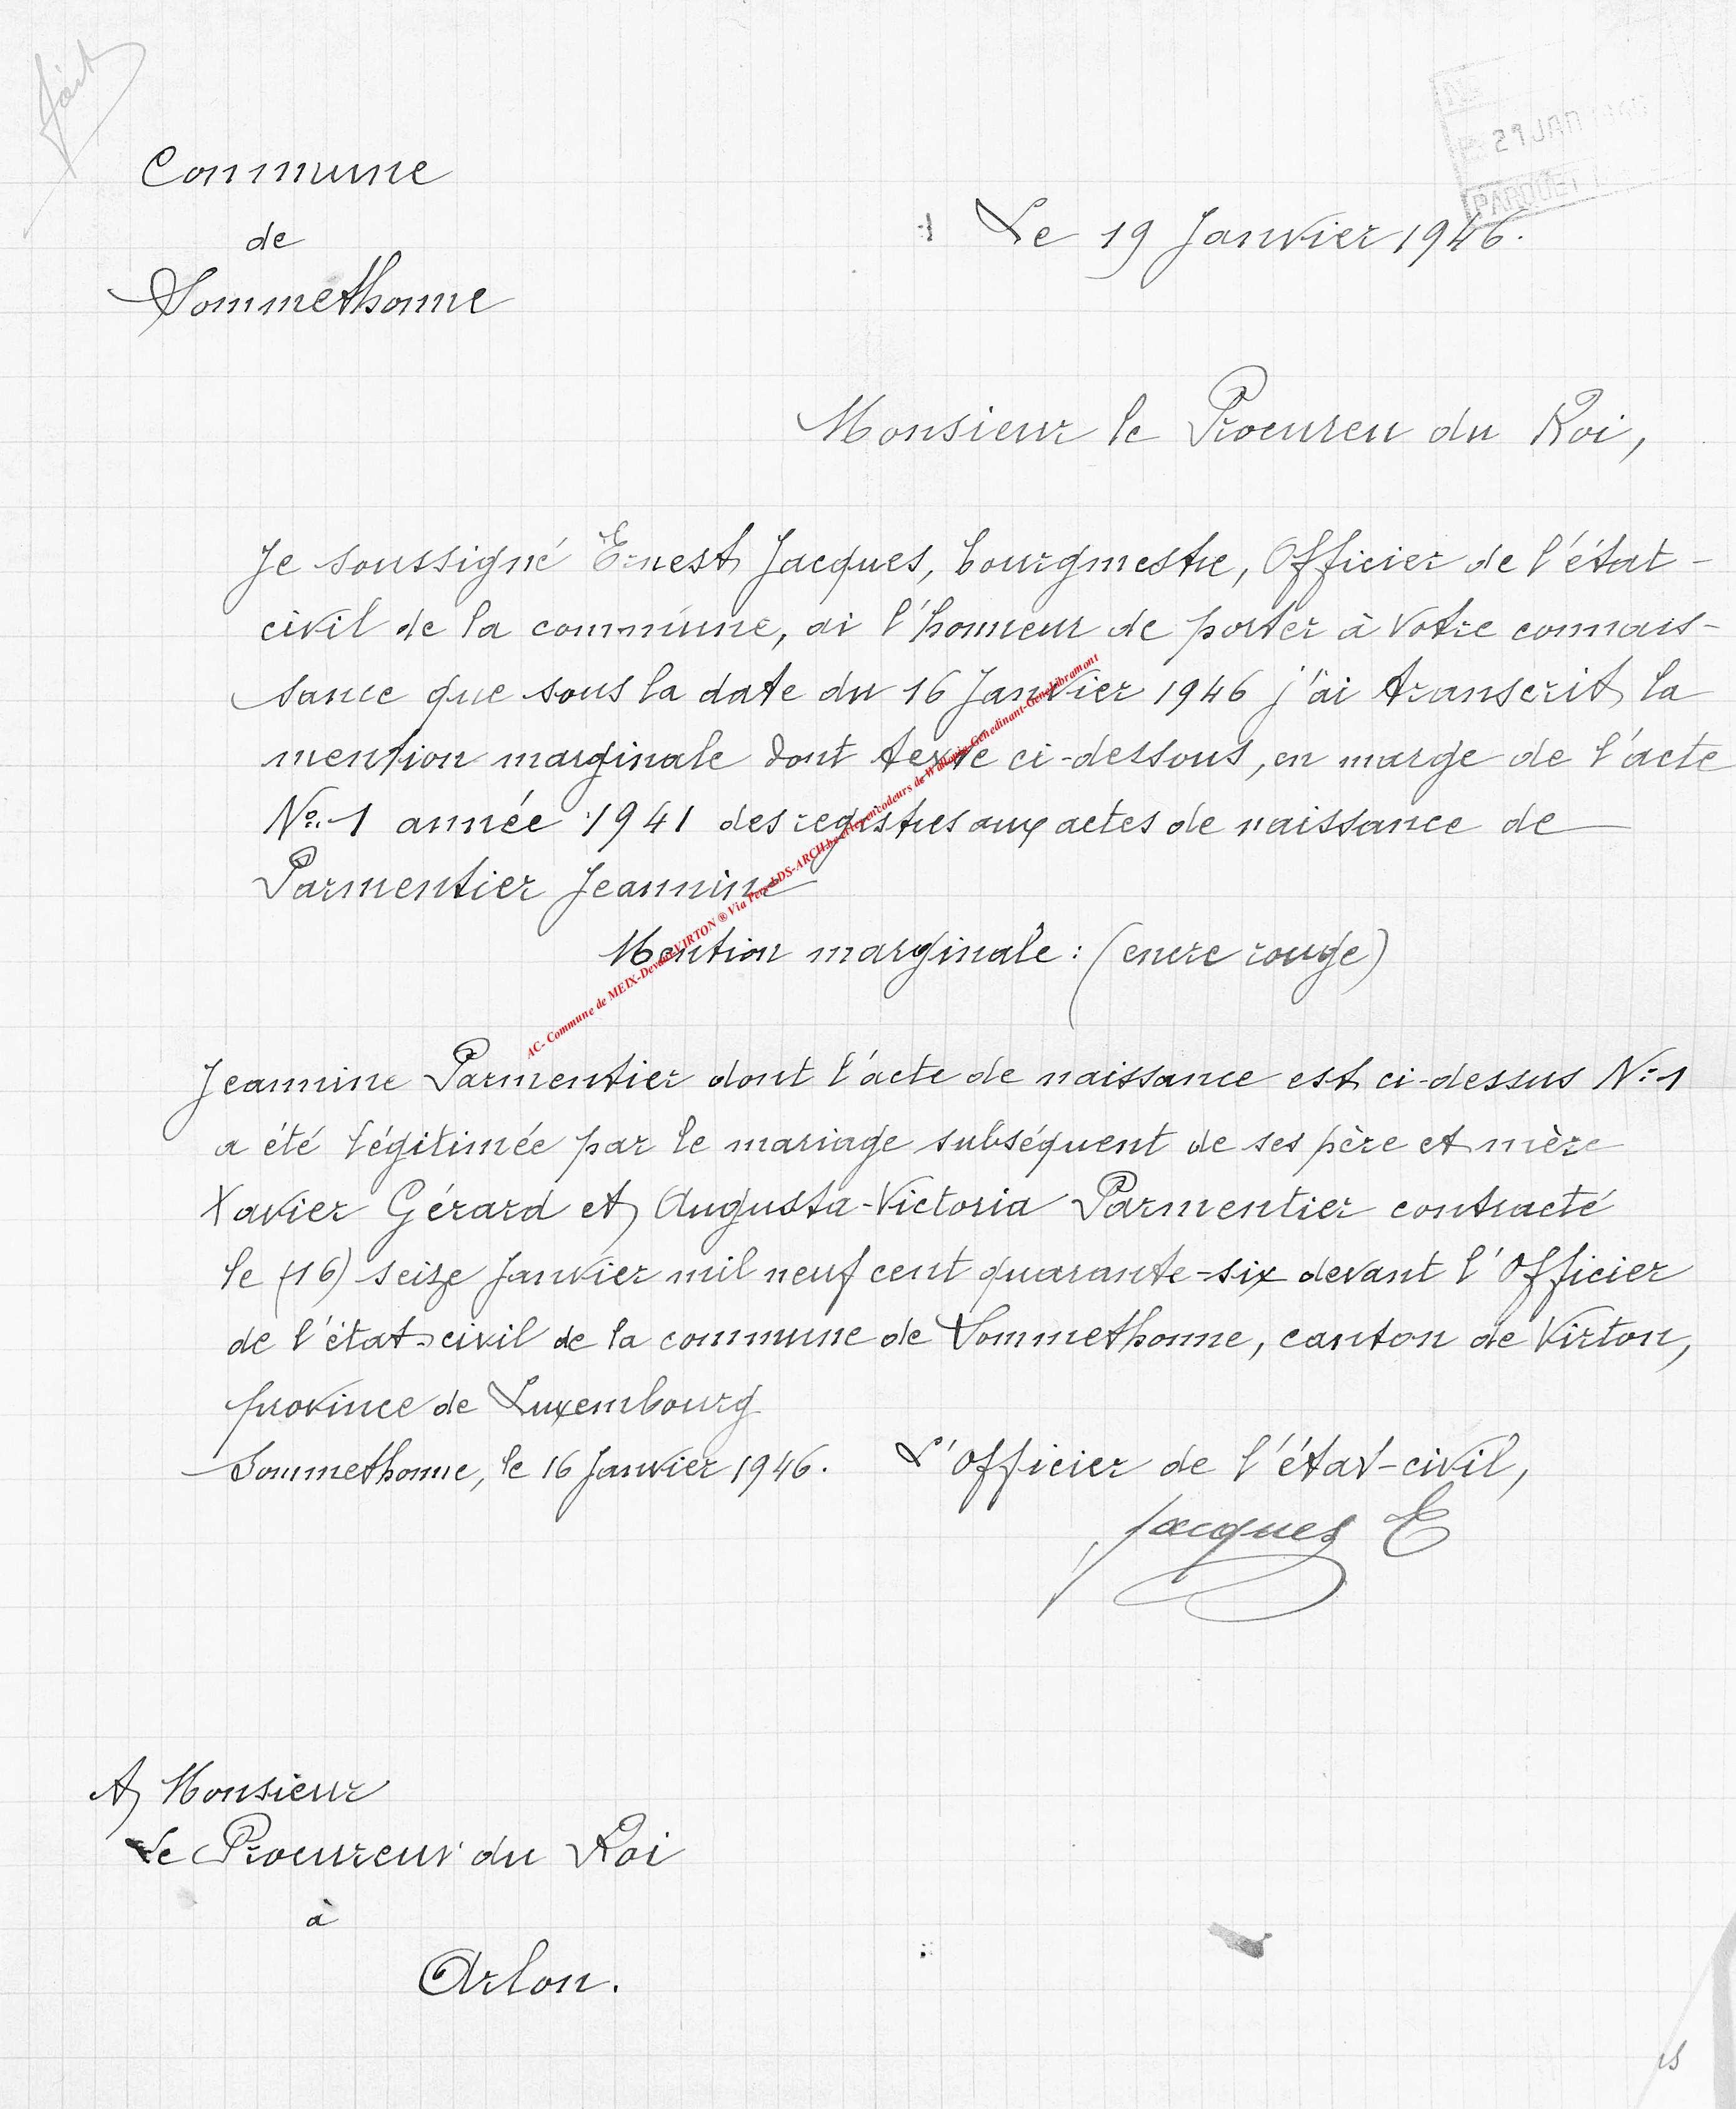 fait
Commune
de
Sommethonne
29 JAN
PARQUET
Le 19 Janvier 1946.
Monsieur le Procureu du Roi,
Je soussigné Ernest Jacques, bourgmestre, Officier de l'état-
civil de la commune, ai l'honneur de porter à votre connais-
sance que sous la date du 16 Janvier 1946 j'ai transcrit la
mention marginale dont texte ci-dessous, en marge de l'acte
No. 1 année 1941 des registres aux actes de naissance de
Parmentier Jeannine
Mention marginale : (encre rouge)
AC- Commune de MEIX-Devant-VIRTON ® Via DS-ARCH encodeurs de Wallonie-Genedinant-Genelibramont
Jeannine Parmentier dont l'acte de naissance est ci-dessus No 1
a été légitimée par le mariage subséquent de ses père et mère
Xavier Gérard et Augusta-Victoria Parmentier contracté
le (16) seize Janvier mil neuf cent quarante-six devant l'Officier
de l'état-civil de la commune de Sommethonne, canton de Virton,
province de Luxembourg
Sommethonne, le 16 Janvier 1946. L'Officier de l'état-civil,
Jacques E
A Monsieur
Le Procureur du Roi
à
Arlon.